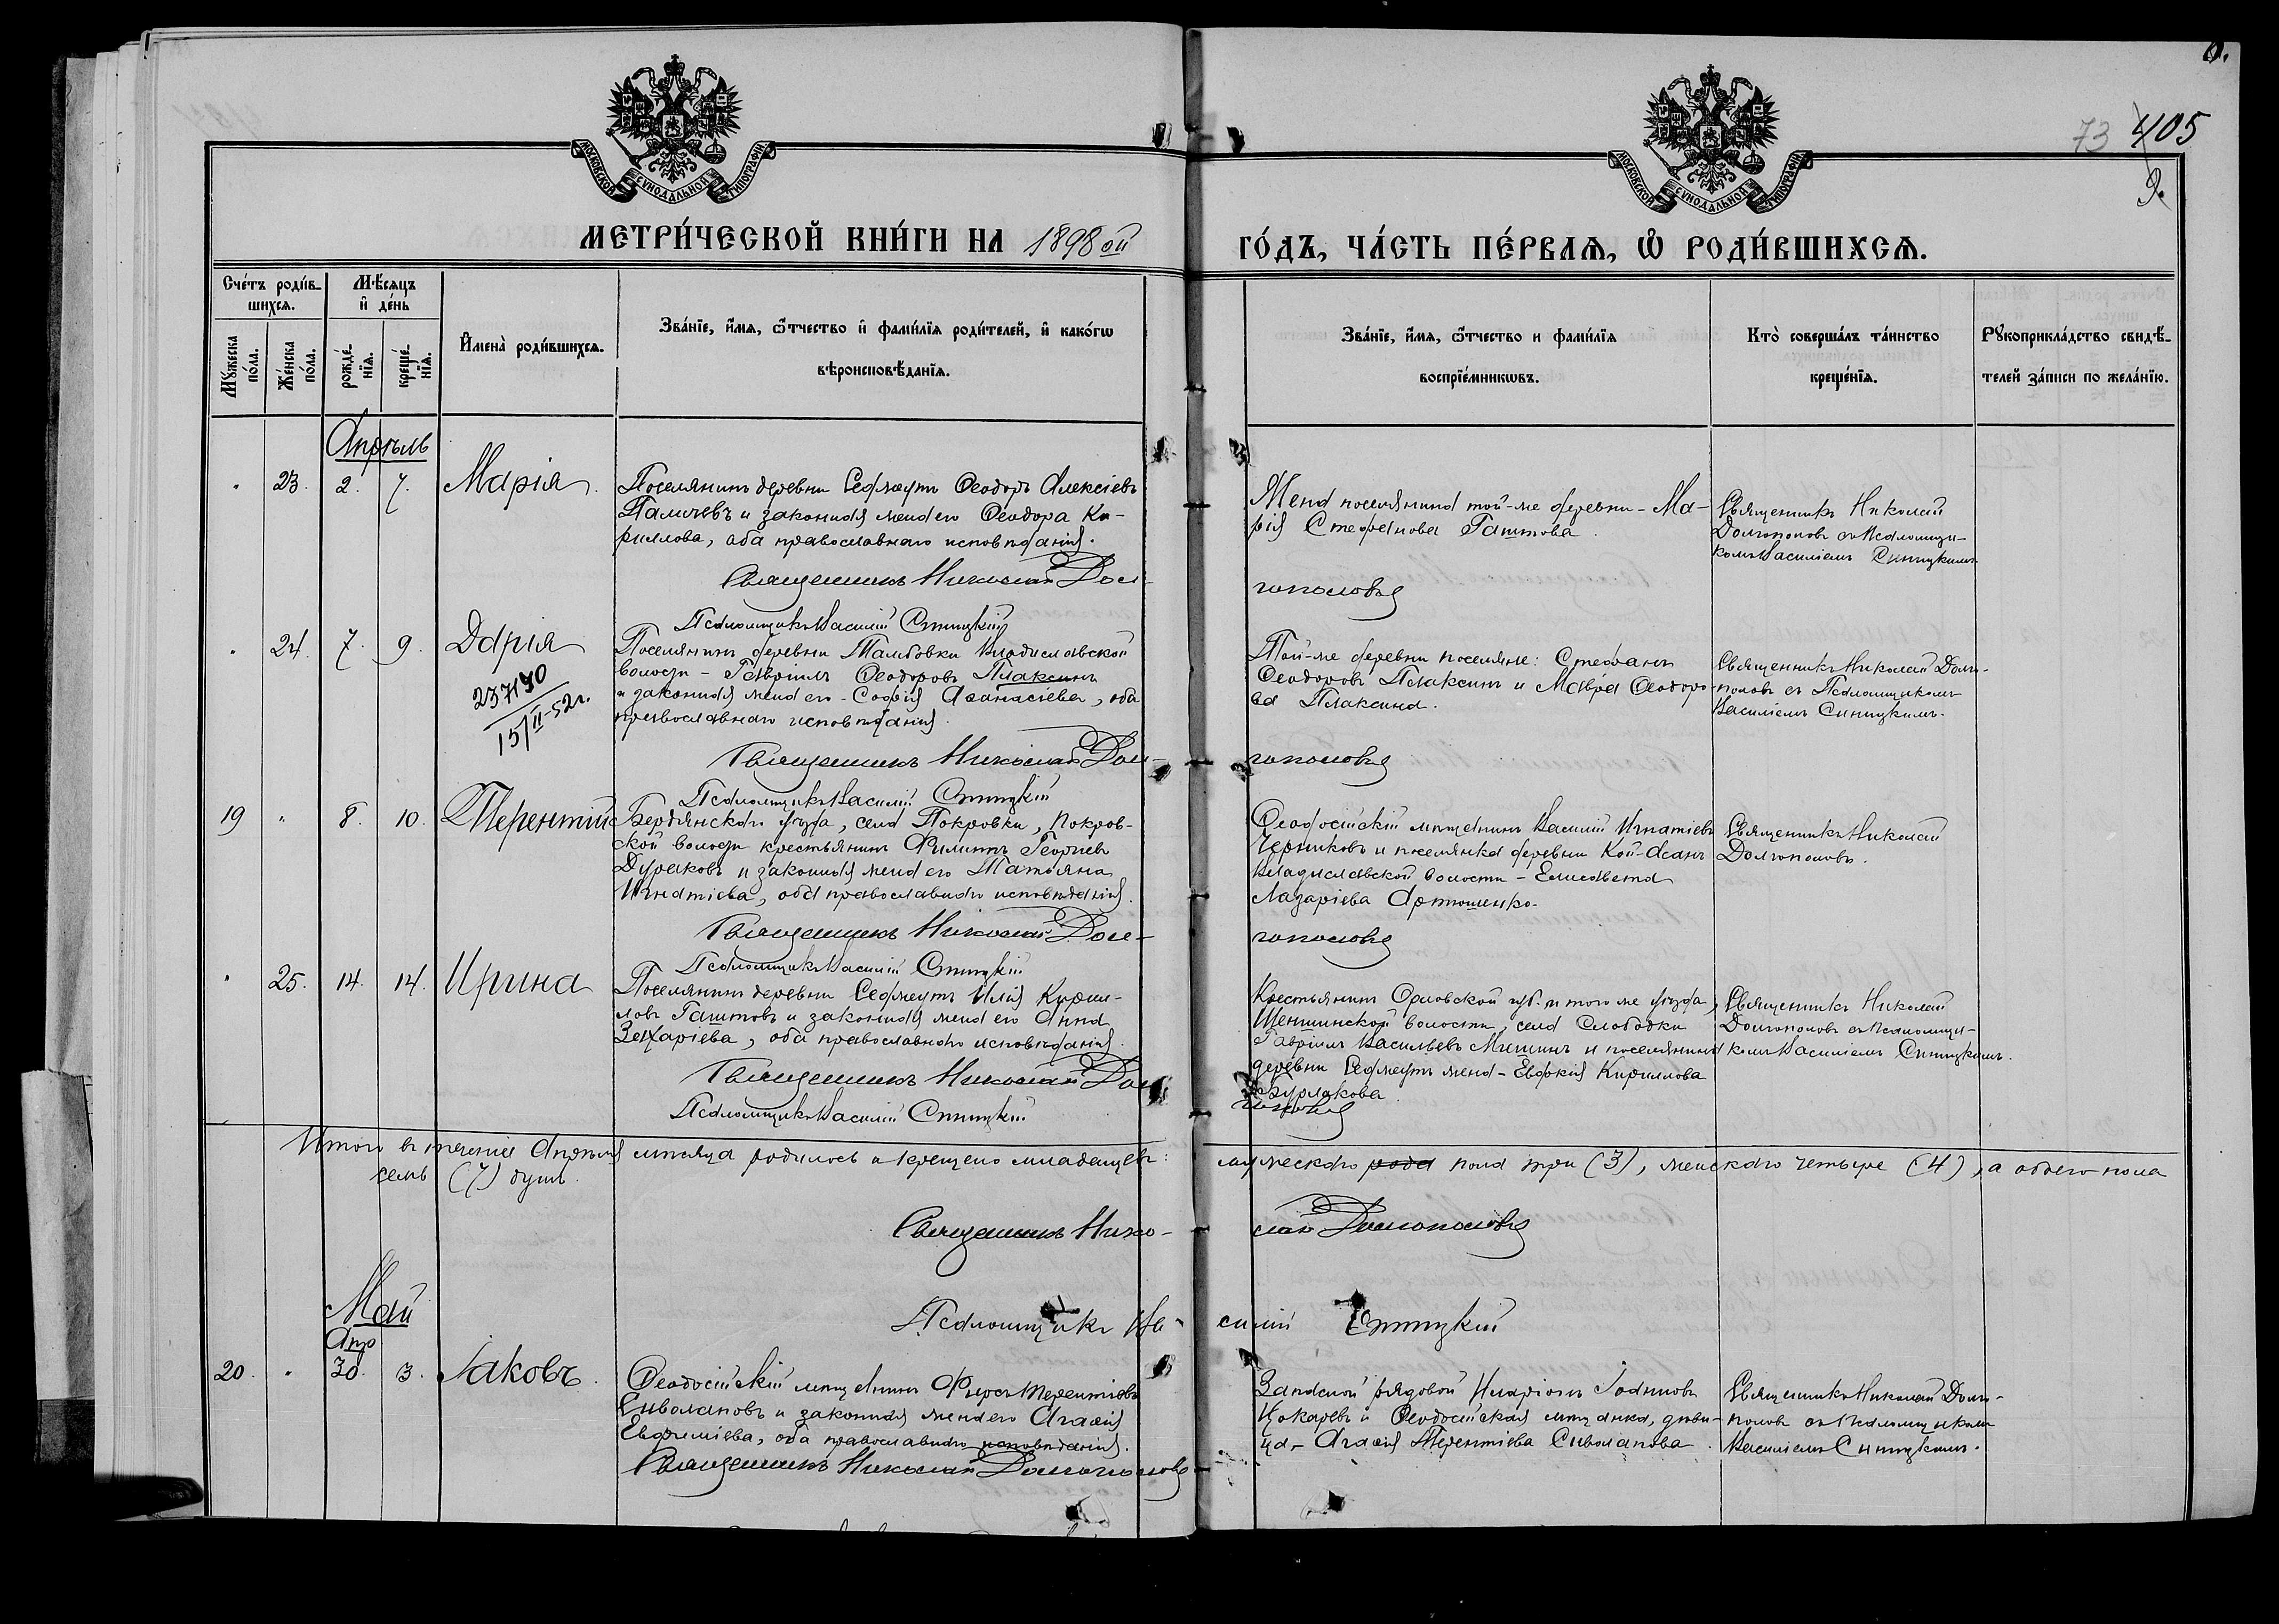 0.
73 405
9.
МОСКОВСКОЙ СѴНОДАЛЬНОЙ ТИПОГРАФІИ
МОСКОВСКОЙ СѴНОДАЛЬНОЙ ТИПОГРАФІИ
МЕТРИ́ЧЕСКОЙ КНИ́ГИ НА 1898 ой
ГО́ДЪ, ЧА́СТЬ ПЕ́РВАѦ, Ѿ РОДИ́ВШИХСѦ.
Сче́тъ роди́в-
шихсѧ.
Мѣ́сяцъ
и҆ де́нь
Мꙋ́жеска по́ла.
Же́нска по́ла.
рожде́-
нїѧ.
креще́-
нїѧ.
И҆мена̀ роди́вшихсѧ.
Зва́нїе, и҆́мѧ, ѻ҆́тчество и҆ фами́лїѧ роди́телей, и҆ како́гѡ
вѣроисповѣ́данїѧ.
Зва́нїе, и҆́мѧ, ѻ҆́тчество и фами́лїѧ
воспрїе́мникѡвъ.
Кто̀ соверша́лъ та́инство
креще́нїѧ.
Рꙋкоприкла́дство свидѣ́-
телей за́писи по жела́нїю.
Апрѣль
" 23. 2. 7. Марія.
Поселянинъ деревни Сефжеутъ Ѳеодоръ Алексіевъ
Паличевъ и законная жена его Ѳеодора Ки-
риллова, оба православнаго исповѣданія.
Священникъ Николай Дол-
гополовъ
Псаломщикъ Василій Синицкій
Жена поселянина той-же деревни - Ма-
рія Стефанова Гаштова.
Священникъ Николай
Долгополовъ съ Псаломщи-
комъ Василіемъ Синицкимъ.
" 24. 7. 9. Дарія
237190
15/II-52г.
Поселянинъ деревни Тамбовки Владиславской
волости - Гавріилъ Ѳеодоровъ Плаксинъ
и законная жена его - Софія Аѳанасіева, оба
православнаго исповѣданія.
Священникъ Николай Дол-
гополовъ
Псаломщикъ Василій Синицкій
Той-же деревни поселяне: Стефанъ
Ѳеодоровъ Плаксинъ и Мавра Ѳеодоро-
ва Плаксина.
Священникъ Николай Долго-
половъ съ Псаломщикомъ
Василіемъ Синицкимъ.
19 " 8. 10. Терентій
Бердянскаго уѣзда, села Покровки, Покров-
ской волости крестьянинъ Филиппъ Георгіевъ
Дураковъ и законная жена его Татьяна
Игнатіева, оба православнаго исповѣданія.
Священникъ Николай Дол-
гополовъ
Псаломщикъ Василій Синицкій
Ѳеодосійскій мѣщанинъ Василій Игнатіевъ
Черниковъ и поселянка деревни Кой-Асанъ
Владиславской волости - Елисавета
Лазаріева Артюшенко.
Священникъ Николай
Долгополовъ.
" 25. 14. 14. Ирина
Поселянинъ деревни Сефжеутъ Илія Кирил-
ловъ Гаштовъ и законная жена его Анна
Захаріева, оба православнаго исповѣданія.
Священникъ Николай Дол-
гополовъ
Псаломщикъ Василій Синицкій
Крестьянинъ Орловской губ. и того же уѣзда,
волости, села Слободки
Гавріилъ Васильевъ Мишинъ и поселянина
деревни Сефжеутъ жена - Евфимія Кириллова
Бурлакова.
Священникъ Николай
Долгополовъ съ Псаломщи-
комъ Василіемъ Синицкимъ.
Итого въ теченіе Апрѣля мѣсяца родилось и крещено младенцевъ: мужескаго рода пола три (3), женскаго четыре (4), а обоего пола
семь (7) душъ.
Священникъ Нико-
лай Долгополовъ
Псаломщикъ Ва-
силій Синицкій
Май
Апр
20. " 30. 3. Іаковъ.
Ѳеодосійскій мѣщанинъ Фирсъ Терентіевъ
Сиволаповъ и законная жена его Агаѳія
Евфиміева, оба православнаго исповѣданія.
Священникъ Николай Долгополовъ
Запасной рядовой Иларіонъ
Цокаревъ и Ѳеодосійская мѣщанка, дѣви-
ца - Агаѳія Терентіева Сиволапова.
Священникъ Николай Долго-
половъ съ Псаломщикомъ
Василіемъ Синицкимъ.